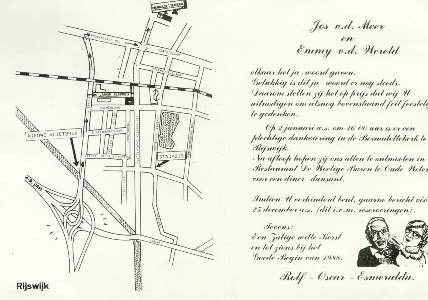 Jos v.d. Meer
en
Emmy v.d. Wereld
elkaar het ja-woord gaven.
Gelukkig is dit ja-woord er nog steeds.
Daarom stellen zij het op prijs dat wij U
uitnodigen om alsnog bovenstaand feit feestelij
te gedenken.
Op 2 januari a.s. om 16.00 uur is er een
plechtige dankviering in de Bernadettekerk te
Rijswijk.
Na afloop hopen zij ons allen te ontmoeten in
Restaurant De Woelige Baren te Oude Weter
voor een diner-dansant.
Indien U verhinderd bent, gaarne bericht vóó
25 december a.s. (dit i.v.m. reserveringen).
Tevens:
Een Zalige witte Kerst
en tot ziens bij het
Goede Begin van 1988.
Rolf - Oscar - Esmeralda.
Rijswijk